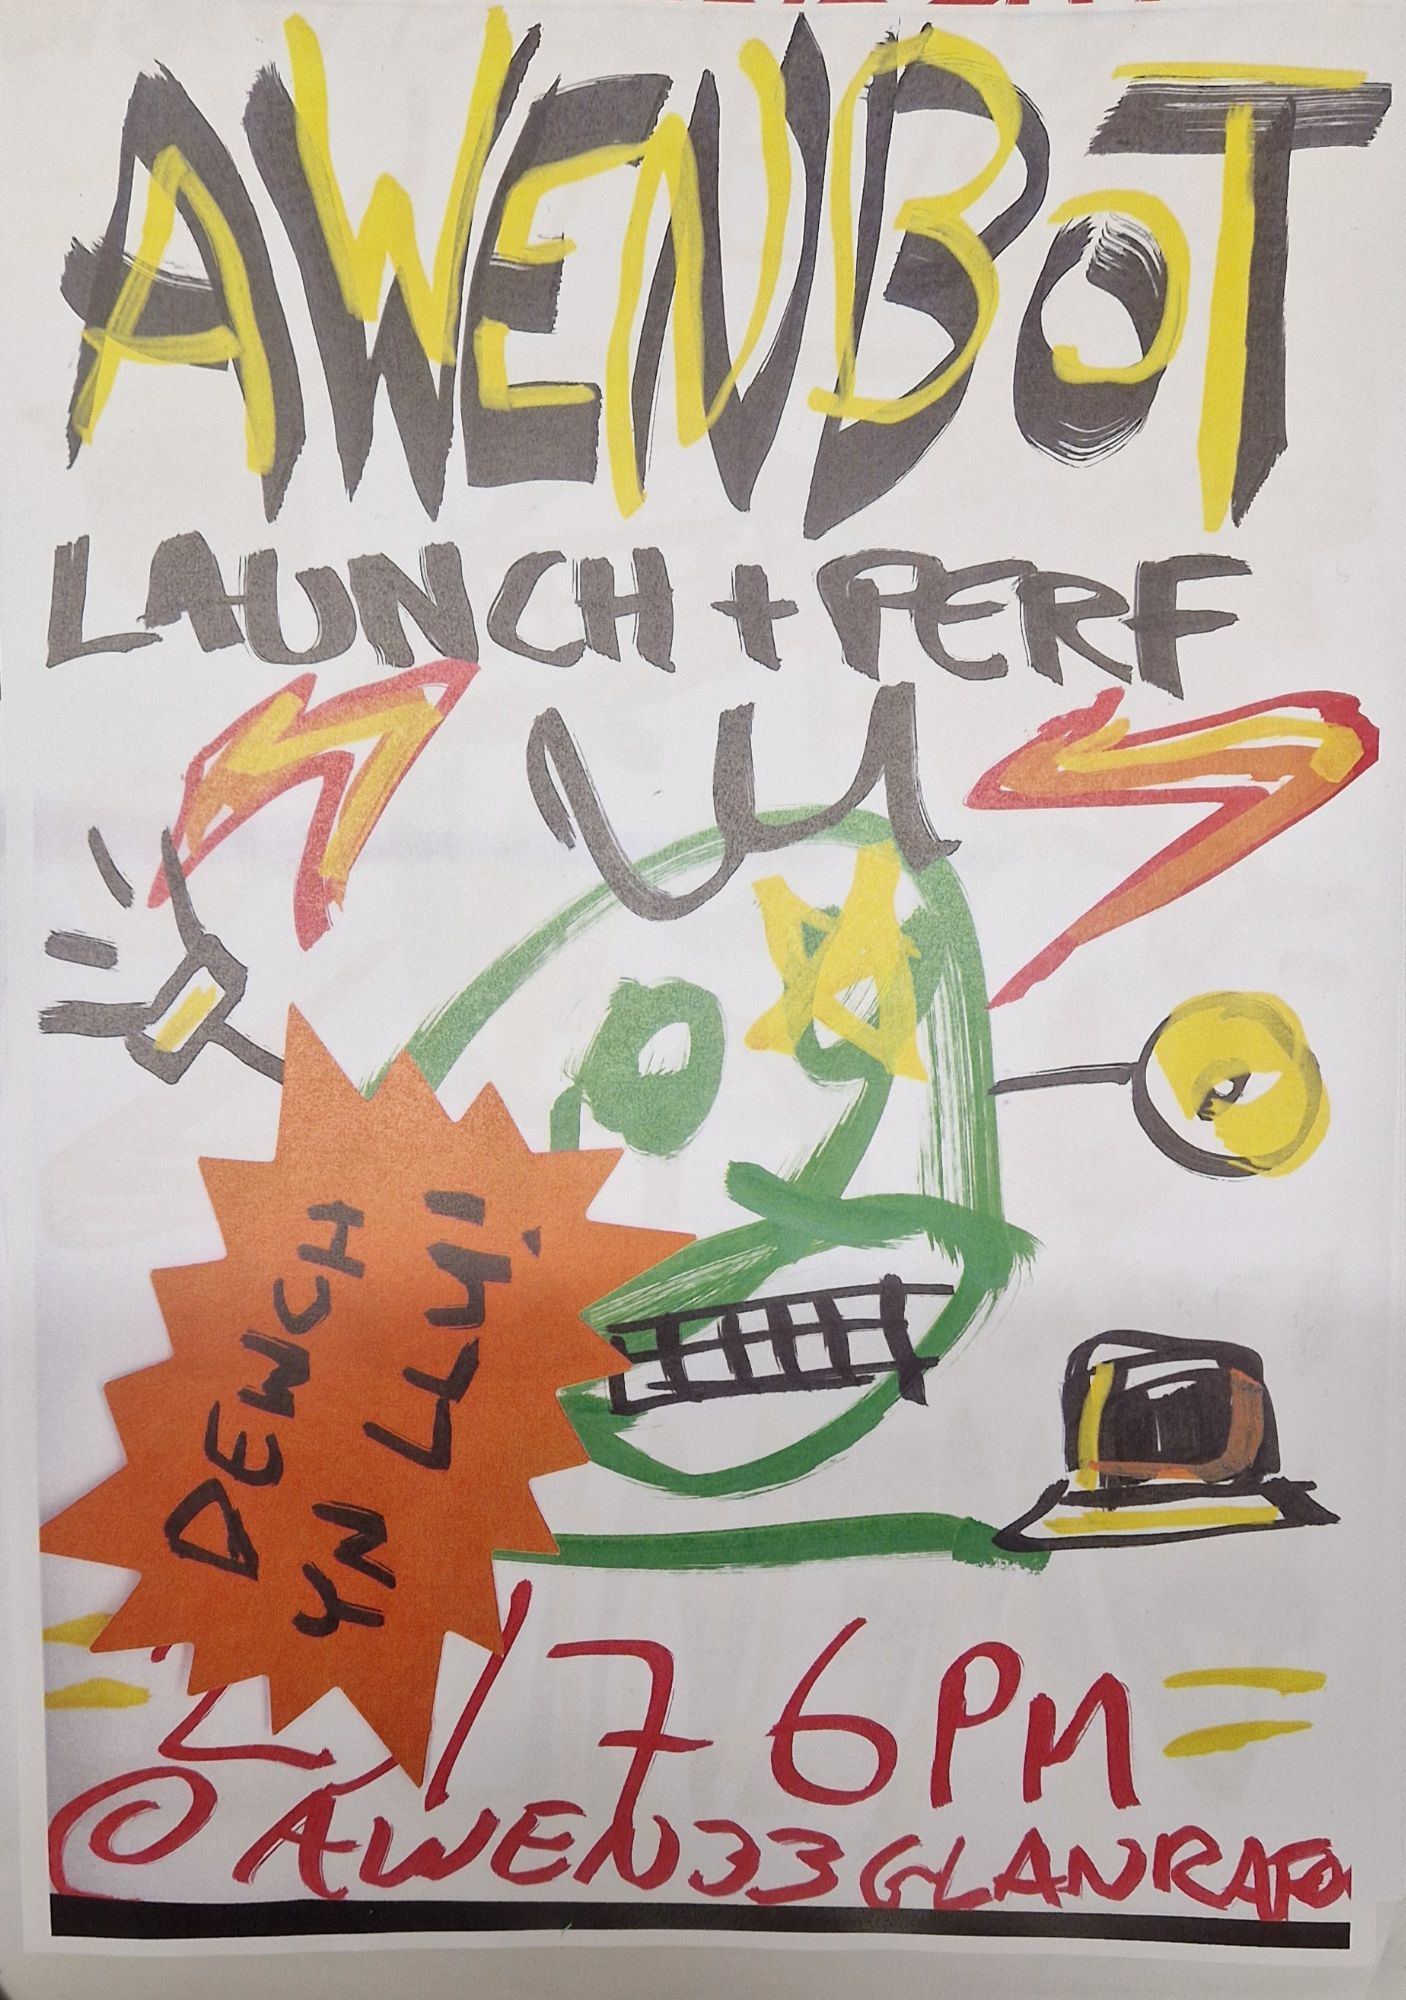 AWENBOT
LAUNCH + PERF
DEWCH
YN LLU!
/7 6PM
@AWEN 33 GLANRAFO